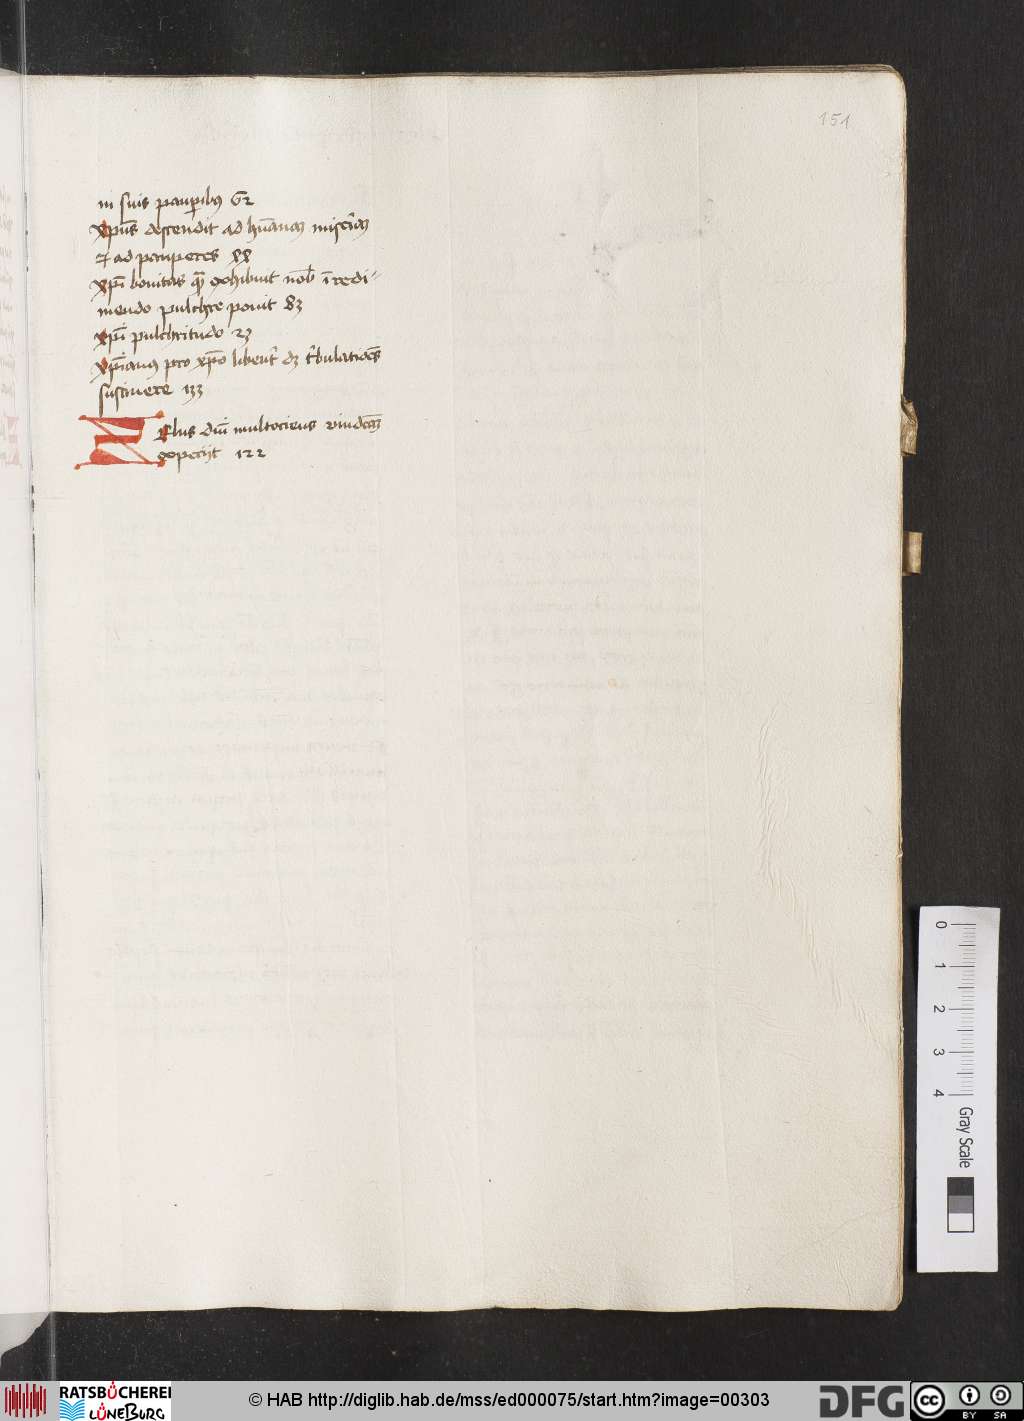 151
in suis paup̲ibus 62
xp̄us descendit ad hūanam miser̄iam
⁊ ad pauperes
xp̄i bonitas quā exhibuit nob̄ ī redi-
mendo pulchre ponit 83
xp̄i pulchritudo 23
xp̄ianus pro xp̄o libent̄ dꝫ t̄bulatiōes
sustinere 133
Zelus diuī multociens vindc̄am
expetijt 122
0
1
2
3
4
Gray Scale
RATSBÜCHEREI
LÜNEBURG
© HAB http://diglib.hab.de/mss/ed000075/start.htm?image=00303
DFG
cc
BY SA